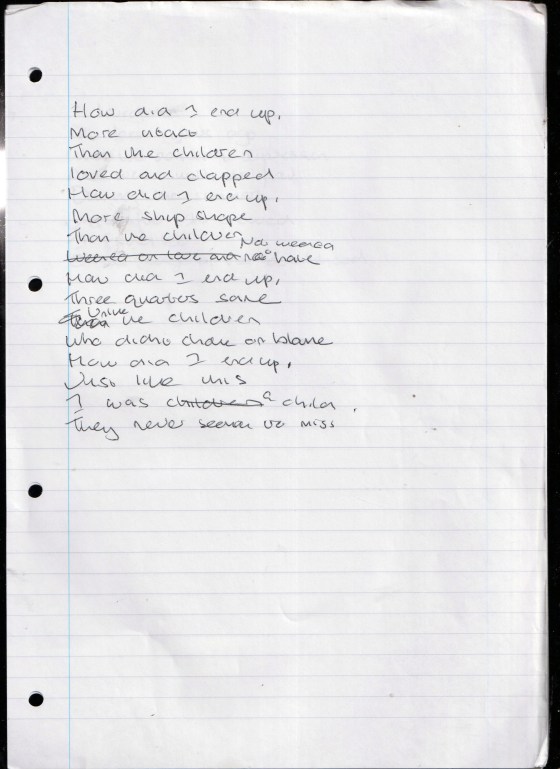 How did I end up,
More intact
Than the children
loved and clapped
How did I end up,
More ship shape
Than the children Not weened
Weened on love and not hate
How did I end up,
Three quarters sane
Unlike the children
Who didn't choke on blame
How did I end up,
Just like this
I was children a child,
They never seemed to miss